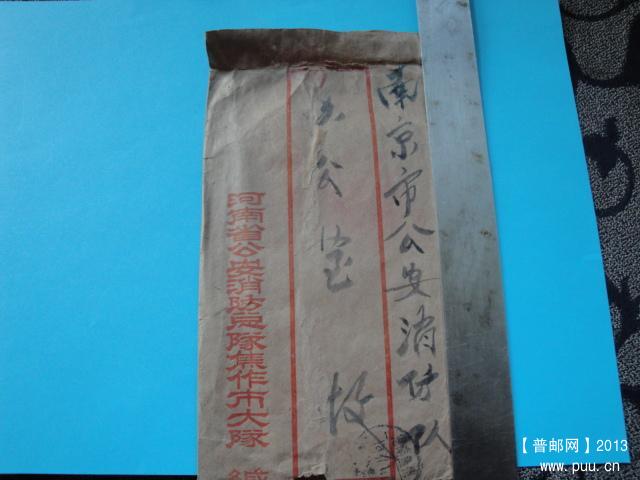 南京市公安消防队
办公室
收
河南省公安消防总队焦作市大队 缄
【普邮网】2013
www.puu.cn